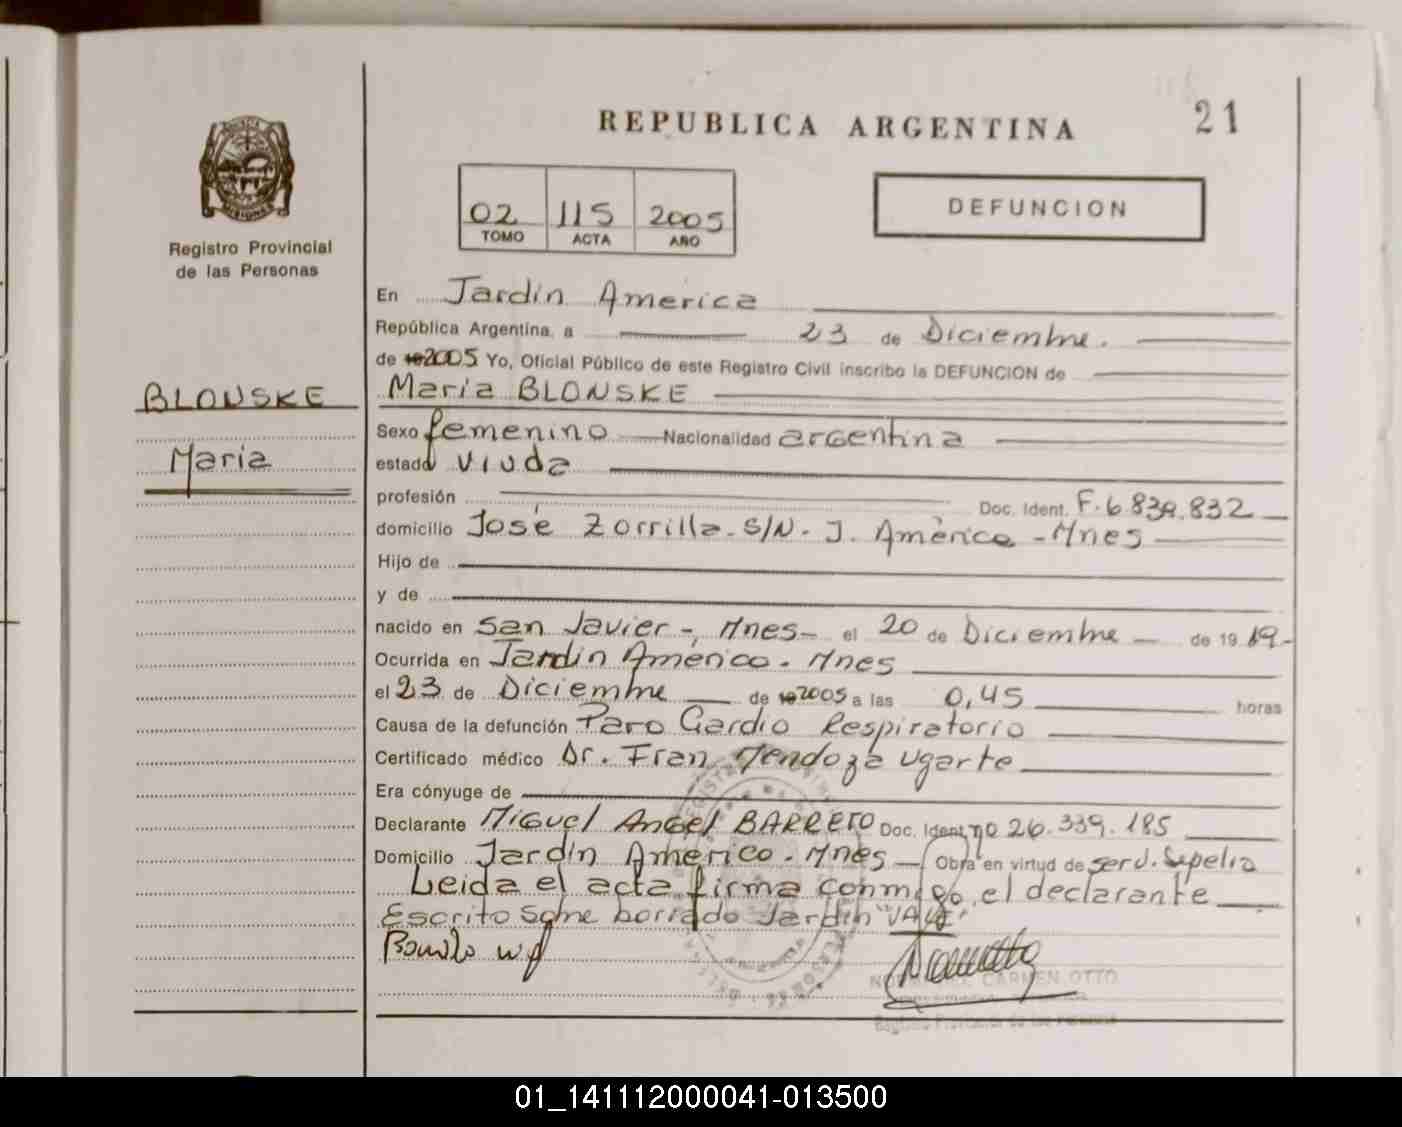 REPUBLICA ARGENTINA
21
MISIONES
Registro Provincial
de las Personas
02 115 2005
TOMO ACTA AÑO
DEFUNCION
BLONSKE
Maria
En Jardin America
República Argentina, a 23 de Diciembre.
de 2005 Yo, Oficial Público de este Registro Civil inscribo la DEFUNCION de
Maria BLONSKE
Sexo femenino Nacionalidad argentina
estado viuda
profesión Doc. Ident. F. 6.839.832
domicilio José Zorrilla S/N. J. América - Mnes
Hijo de
y de
nacido en San Javier -, Mnes - el 20 de Diciembre de 19 19 -
Ocurrida en Jardin América. Mnes
el 23 de Diciembre de 2005 a las 0,45 horas
Causa de la defunción Paro Cardio Respiratorio
Certificado médico Dr. Fran Mendoza Ugarte
Era cónyuge de
Declarante Miguel Angel BARRETO Doc. Ident. nº 26.339.185
Domicilio Jardin America. Mnes Obra en virtud de serv. Sepelio
Leida el acta firma conmigo el declarante
Escrito sobre borrado Jardin "VALE"
CARMEN OTTO
Registro Provincial de las Personas
01_141112000041-013500